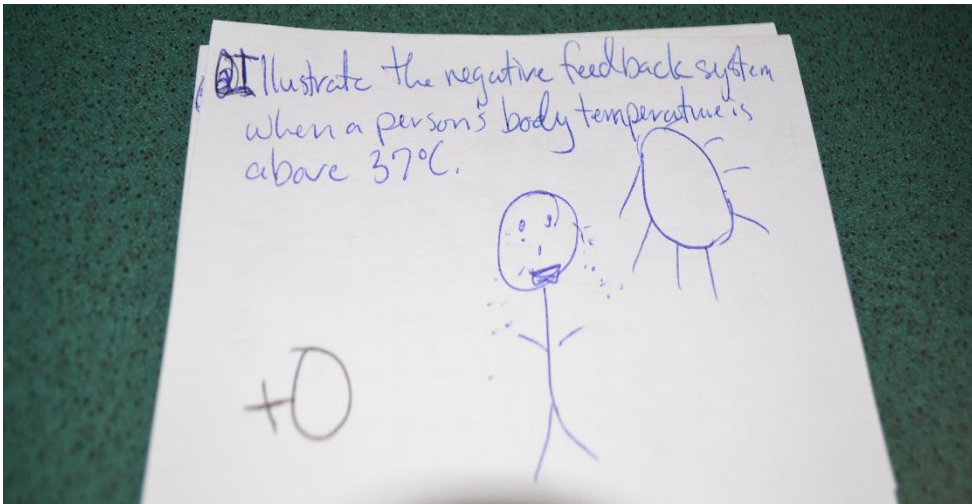 Illustrate the negative feedback system
when a person's body temperature is
above 37°C.
+0